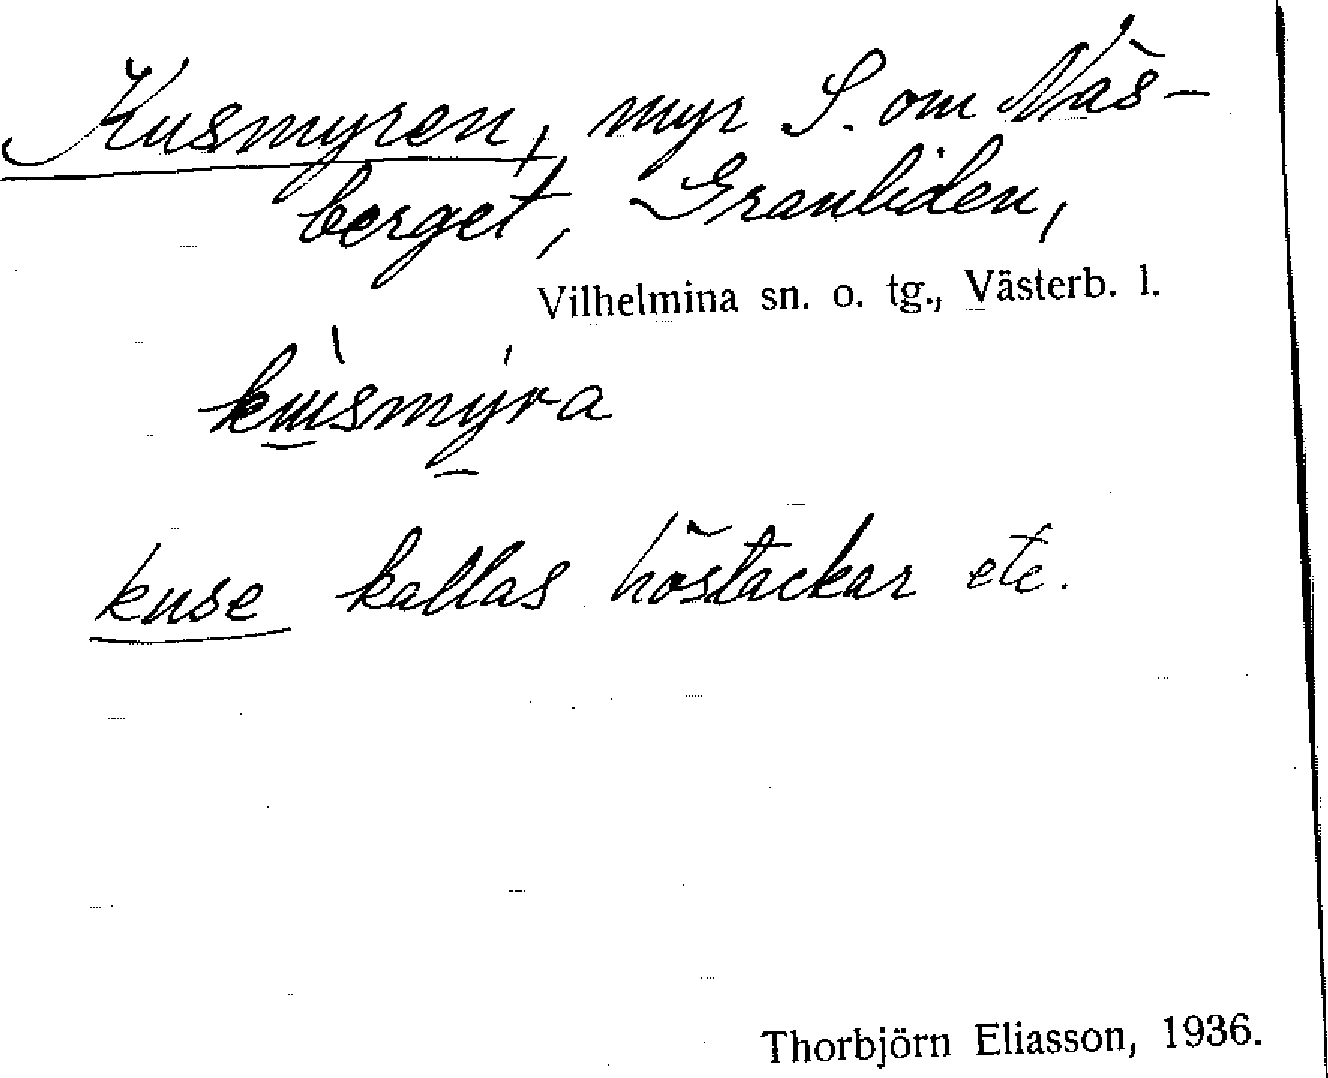 Kusmyren, myr S. om Näs-
berget, Granliden,
Vilhelmina sn. o. tg., Västerb. l.
kusmyra
kuse kallas höstackar etc.
Thorbjörn Eliasson, 1936.